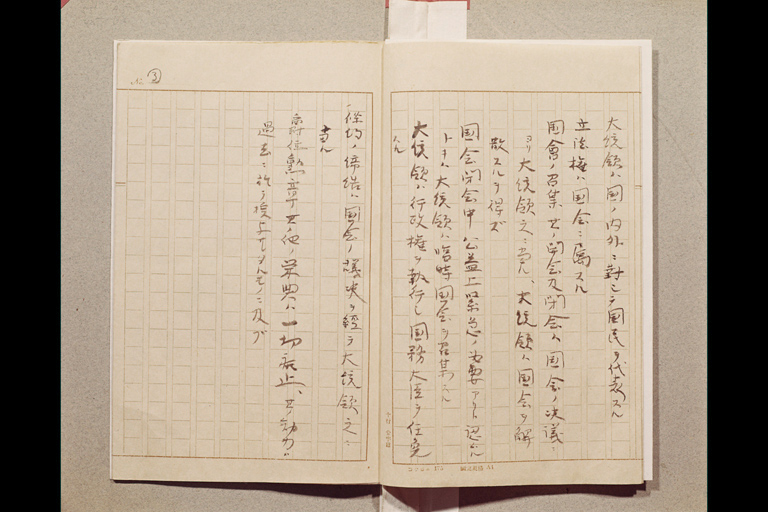 大統領ハ国ノ内外ニ対シテ国民ヲ代表スル
立法権ハ国会ニ属スル
国會ノ召集 其ノ開会及閉会ハ国会ノ决議
ヨリ大統領之ニ当ル、大統領ハ国会ヲ解
散スルヲ得ズ
国会閉会中公益上緊急ノ必要アリト認ムル
トキハ大統領ハ臨時国会ヲ召集スル
大統領ハ行政権ヲ執行シ国務大臣ヲ任免
スル
No. ③
條約ノ締結ハ国会ノ議决ヲ経テ大統領之ニ
当ル
爵位勲章其ノ他ノ栄典ハ一切廃止、其ノ効力ハ
過去ニ於テ授与サレタルモノニ及ブ